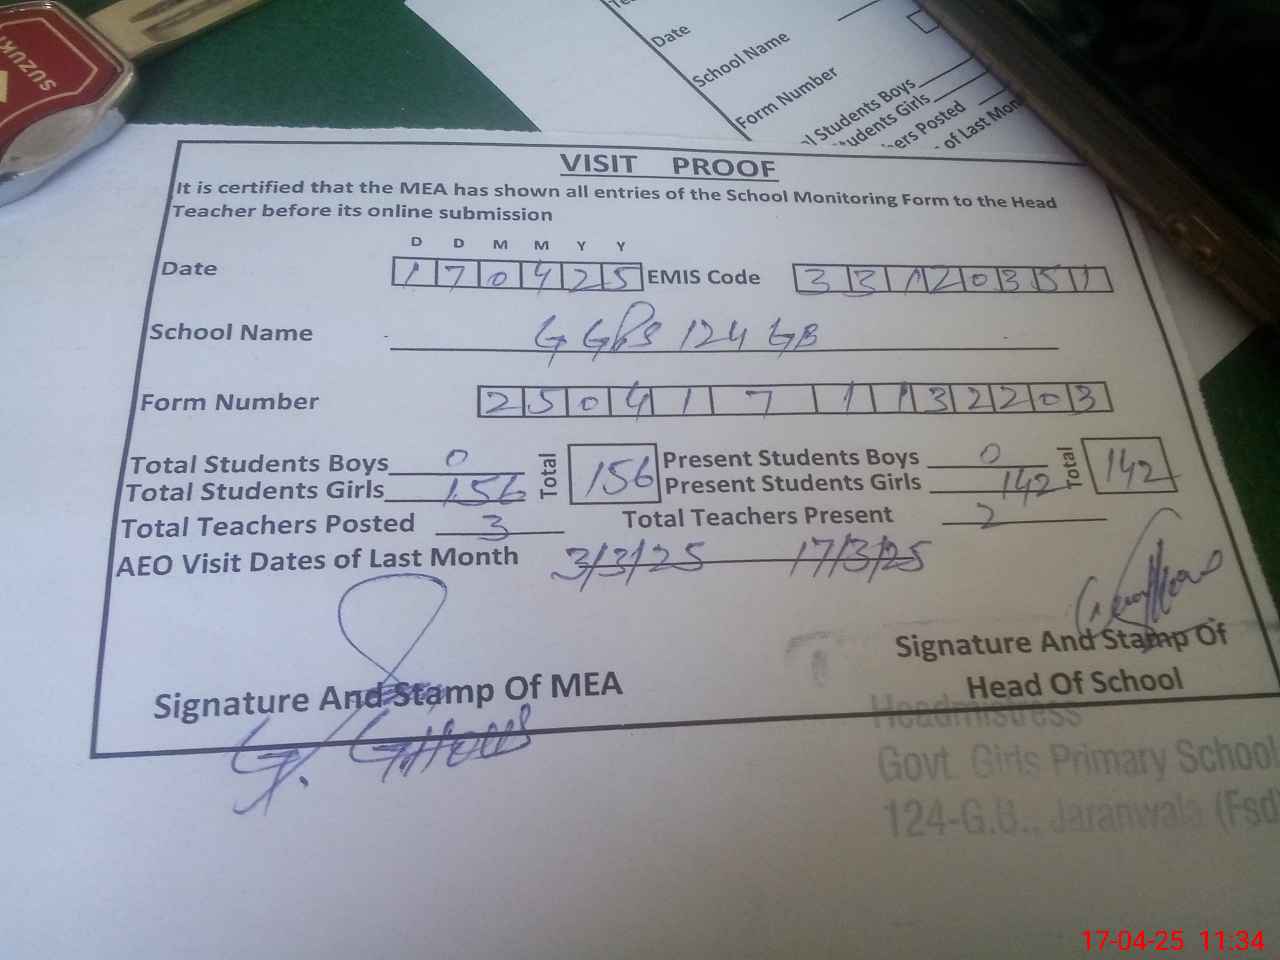 SUZUKI
Date
School Name
Form Number
Students Boys
Students Girls
Posted
of Last Mon
VISIT PROOF
It is certified that the MEA has shown all entries of the School Monitoring Form to the Head
Teacher before its online submission
D D M M Y Y
Date 1 7 0 4 2 5 EMIS Code 3 3 1 2 0 3 5 1
School Name GGPS 124 GB
Form Number 2 5 0 4 1 7 1 1 3 2 2 0 3
Total Students Boys 0 Total 156 Present Students Boys 0 Total 142
Total Students Girls 156 Present Students Girls 142
Total Teachers Posted 3 Total Teachers Present 2
AEO Visit Dates of Last Month 3/3/25 17/3/25
Signature And Stamp Of MEA
Signature And Stamp Of
Head Of School
Headmistress
Govt. Girls Primary School
124-G.B., Jaranwala (Fsd
17-04-25 11:34